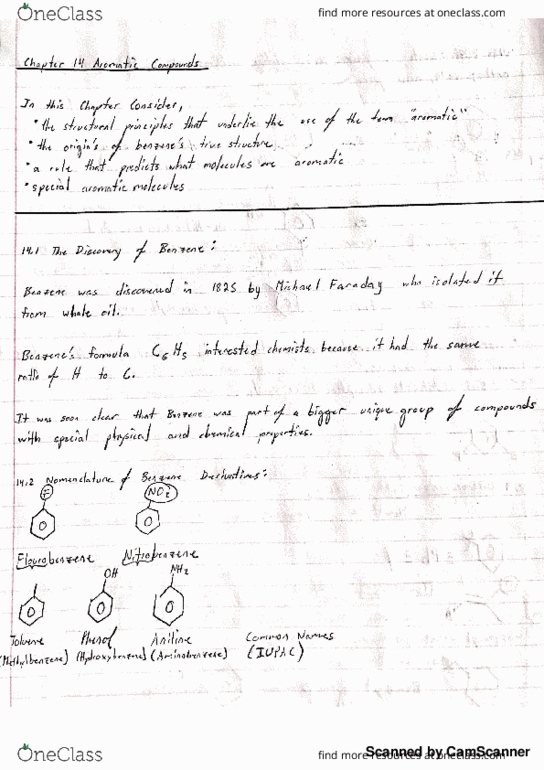 OneClass
find more resources at oneclass.com
Chapter 14 Aromatic Compounds
In this Chapter Consider,
• the structural principles that underlie the use of the term "aromatic"
• the origin's of benzene's true structure
• a rule that predicts what molecules are aromatic
• special aromatic molecules
14.1 The Discovery of Benzene:
Benzene was discovered in 1825 by Michael Faraday who isolated it
from whale oil.
Benzene's formula C6H5 interested chemists because it had the same
ratio of H to C.
It was soon clear that Benzene was part of a bigger unique group of compounds
with special physical and chemical properties.
14.2 Nomenclature of Benzene Derivitives:
F NO2
Flourobenzene Nitrobenzene
OH NH2
Toluene Phenol Aniline Common Names
(Methylbenzene) (Hydroxybenzene) (Aminobenzene) (IUPAC)
OneClass
find more resources at oneclass.com
Scanned by CamScanner